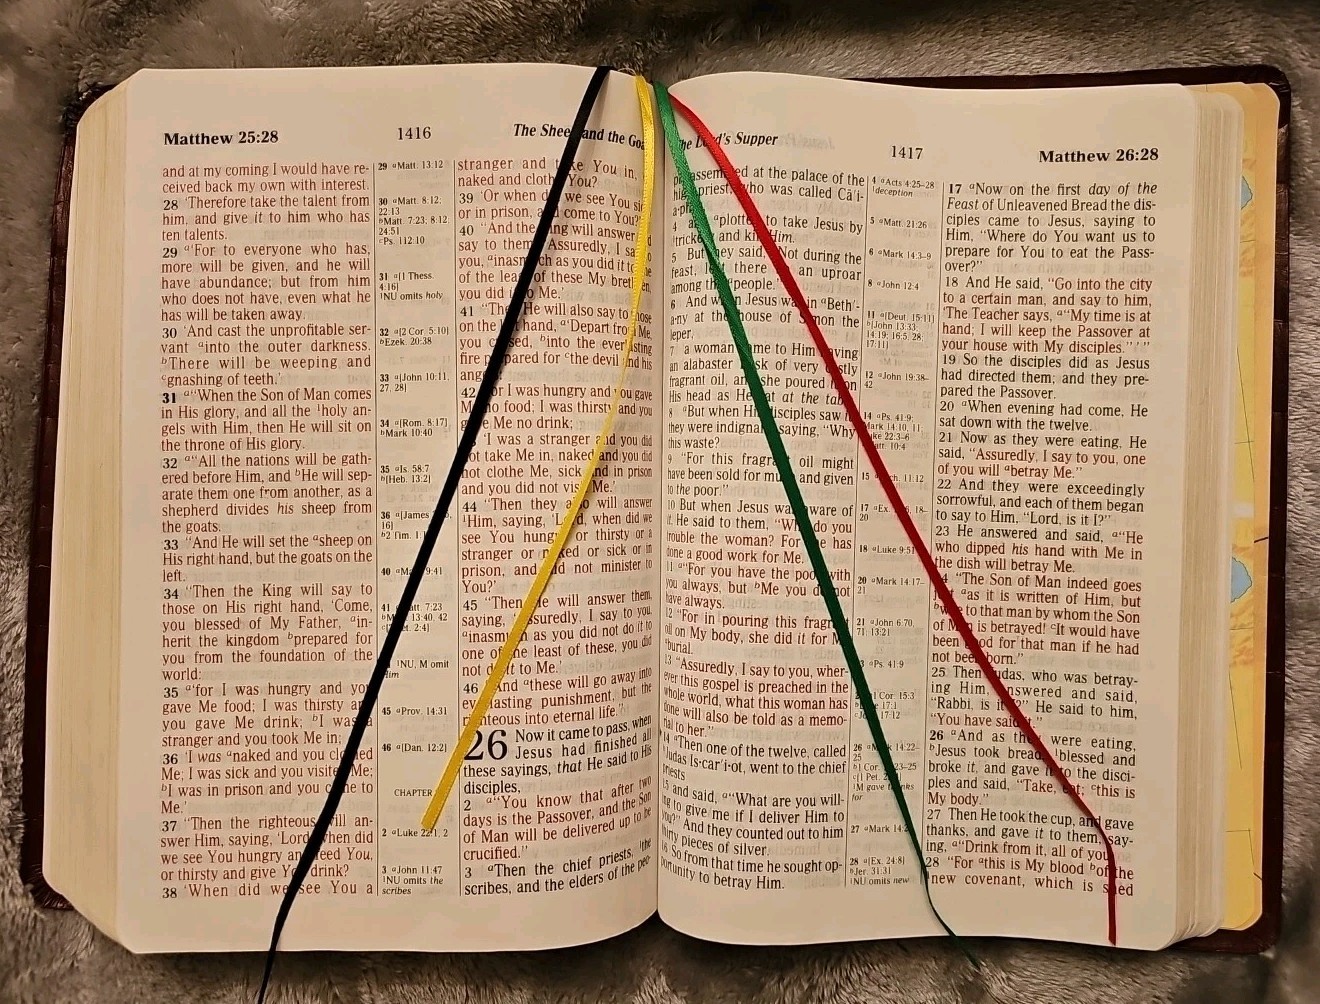 Matthew 25:28
1416
The Shee and the Goa
and at my coming I would have re-
ceived back my own with interest.
28 'Therefore take the talent from
him, and give it to him who has
ten talents.
29 a'For to everyone who has,
more will be given, and he will
have abundance; but from him
who does not have, even what he
has will be taken away.
30 'And cast the unprofitable ser-
vant ainto the outer darkness.
bThere will be weeping and
cgnashing of teeth.'
31 a"When the Son of Man comes
in His glory, and all the 1holy an-
gels with Him, then He will sit on
the throne of His glory.
32 a"All the nations will be gath-
ered before Him, and bHe will sep-
arate them one from another, as a
shepherd divides his sheep from
the goats.
33 "And He will set the asheep on
His right hand, but the goats on the
left.
34 "Then the King will say to
those on His right hand, 'Come,
you blessed of My Father, ain-
herit the kingdom bprepared for
you from the foundation of the
world:
35 a'for I was hungry and you
gave Me food; I was thirsty and
you gave Me drink; bI was a
stranger and you took Me in;
36 'I was anaked and you clothed
Me; I was sick and you visited Me;
bI was in prison and you came to
Me.'
37 "Then the righteous will an-
swer Him, saying, 'Lord, when did
we see You hungry and feed You,
or thirsty and give You drink?
38 'When did we see You a
29 aMatt. 13:12
30 aMatt. 8:12;
22:13
bMatt. 7:23; 8:12;
24:51
cPs. 112:10
31 a[1 Thess.
4:16]
1NU omits holy
32 a[2 Cor. 5:10]
bEzek. 20:38
33 a[John 10:11,
27, 28]
34 a[Rom. 8:17]
bMark 10:40
35 aIs. 58:7
b[Heb. 13:2]
36 a[James
16]
b2 Tim. 1
40 9:41
41 7:23
13:40, 42
2:4]
NU, M omit
Him
45 aProv. 14:31
46 a[Dan. 12:2]
CHAPTER
2 aLuke 22:1, 2
3 aJohn 11:47
1NU omits the
scribes
stranger and take You in,
naked and clothe You?
39 'Or when did we see You sick,
or in prison, and come to You?'
40 "And the King will answer
say to them, 'Assuredly, I say
you, ainasmuch as you did it to
of the least of these My brethren,
you did it to Me.'
41 "Then He will also say to those
on the left hand, a'Depart from Me,
you cursed, binto the everlasting
fire prepared for cthe devil and his
angels:
42 'for I was hungry and you gave
Me no food; I was thirsty and you
gave Me no drink;
'I was a stranger and you did
not take Me in, naked and you did
not clothe Me, sick and in prison
and you did not visit Me.'
44 "Then they also will answer
1Him, saying, 'Lord, when did we
see You hungry or thirsty or a
stranger or naked or sick or in
prison, and did not minister to
You?'
45 "Then He will answer them,
saying, 'Assuredly, I say to you,
ainasmuch as you did not do it to
one of the least of these, you did
not do it to Me.'
46 "And athese will go away into
everlasting punishment, but the
righteous into eternal life."
26 Now it came to pass, when
Jesus had finished all
these sayings, that He said to His
disciples,
2 a"You know that after two
days is the Passover, and the Son
of Man will be delivered up to be
crucified."
3 aThen the chief priests, 1the
scribes, and the elders of the peo-
The Lord's Supper
1417
Matthew 26:28
assembled at the palace of the
priest, who was called Cā'i-
4 and aplotted to take Jesus by
1trickery and kill Him.
5 But they said, "Not during the
feast, lest there be an uproar
among the apeople."
6 And when Jesus was in aBeth'-
a·ny at the house of Simon the
leper,
7 a woman came to Him having
an alabaster flask of very costly
fragrant oil, and she poured it on
His head as He sat at the table.
8 aBut when His disciples saw it,
they were indignant, saying, "Why
this waste?
9 "For this fragrant oil might
have been sold for much and given
to the poor."
10 But when Jesus was aware of
it, He said to them, "Why do you
trouble the woman? For she has
done a good work for Me.
11 a"For you have the poor with
you always, but bMe you do not
have always.
12 "For in pouring this fragrant
oil on My body, she did it for My
aburial.
13 "Assuredly, I say to you, wher-
ever this gospel is preached in the
whole world, what this woman has
done will also be told as a memo-
rial to her."
14 aThen one of the twelve, called
Judas Is·car'i·ot, went to the chief
priests
15 and said, a"What are you will-
ing to give me if I deliver Him to
you?" And they counted out to him
thirty pieces of silver.
16 So from that time he sought op-
portunity to betray Him.
4 aActs 4:25-28
1deception
5 aMatt. 21:26
6 aMark 14:3-9
8 aJohn 12:4
11 a[Deut. 15:11]
b[John 13:33;
14:19; 16:5, 28;
17:11]
12 aJohn 19:38-
42
14 aPs. 41:9;
Mark 14:10, 11;
Luke 22:3-6
15 11:12
17 aEx. 18-
20
18 aLuke 9:51
20 aMark 14:17-
21
21 aJohn 6:70,
71; 13:21
aPs. 41:9
1 Cor. 15:3
17:1
17:12
26 aMark 14:22-
25
b1 Cor. 23-25
c[1 Pet.
1M gave thanks
for
27 aMark 14:2
28 a[Ex. 24:8]
bJer. 31:31
1NU omits new
17 aNow on the first day of the
Feast of Unleavened Bread the dis-
ciples came to Jesus, saying to
Him, "Where do You want us to
prepare for You to eat the Pass-
over?"
18 And He said, "Go into the city
to a certain man, and say to him,
'The Teacher says, a"My time is at
hand; I will keep the Passover at
your house with My disciples." ' "
19 So the disciples did as Jesus
had directed them; and they pre-
pared the Passover.
20 aWhen evening had come, He
sat down with the twelve.
21 Now as they were eating, He
said, "Assuredly, I say to you, one
of you will abetray Me."
22 And they were exceedingly
sorrowful, and each of them began
to say to Him, "Lord, is it I?"
23 He answered and said, a"He
who dipped his hand with Me in
the dish will betray Me.
24 "The Son of Man indeed goes
just aas it is written of Him, but
bwoe to that man by whom the Son
of Man is betrayed! cIt would have
been good for that man if he had
not been born."
25 Then Judas, who was betray-
ing Him, answered and said,
"Rabbi, is it I?" He said to him,
"You have said it."
26 aAnd as they were eating,
bJesus took bread, 1blessed and
broke it, and gave it to the disci-
ples and said, "Take, eat; cthis is
My body."
27 Then He took the cup, and gave
thanks, and gave it to them, say-
ing, a"Drink from it, all of you.
28 "For athis is My blood bof the
1new covenant, which is shed